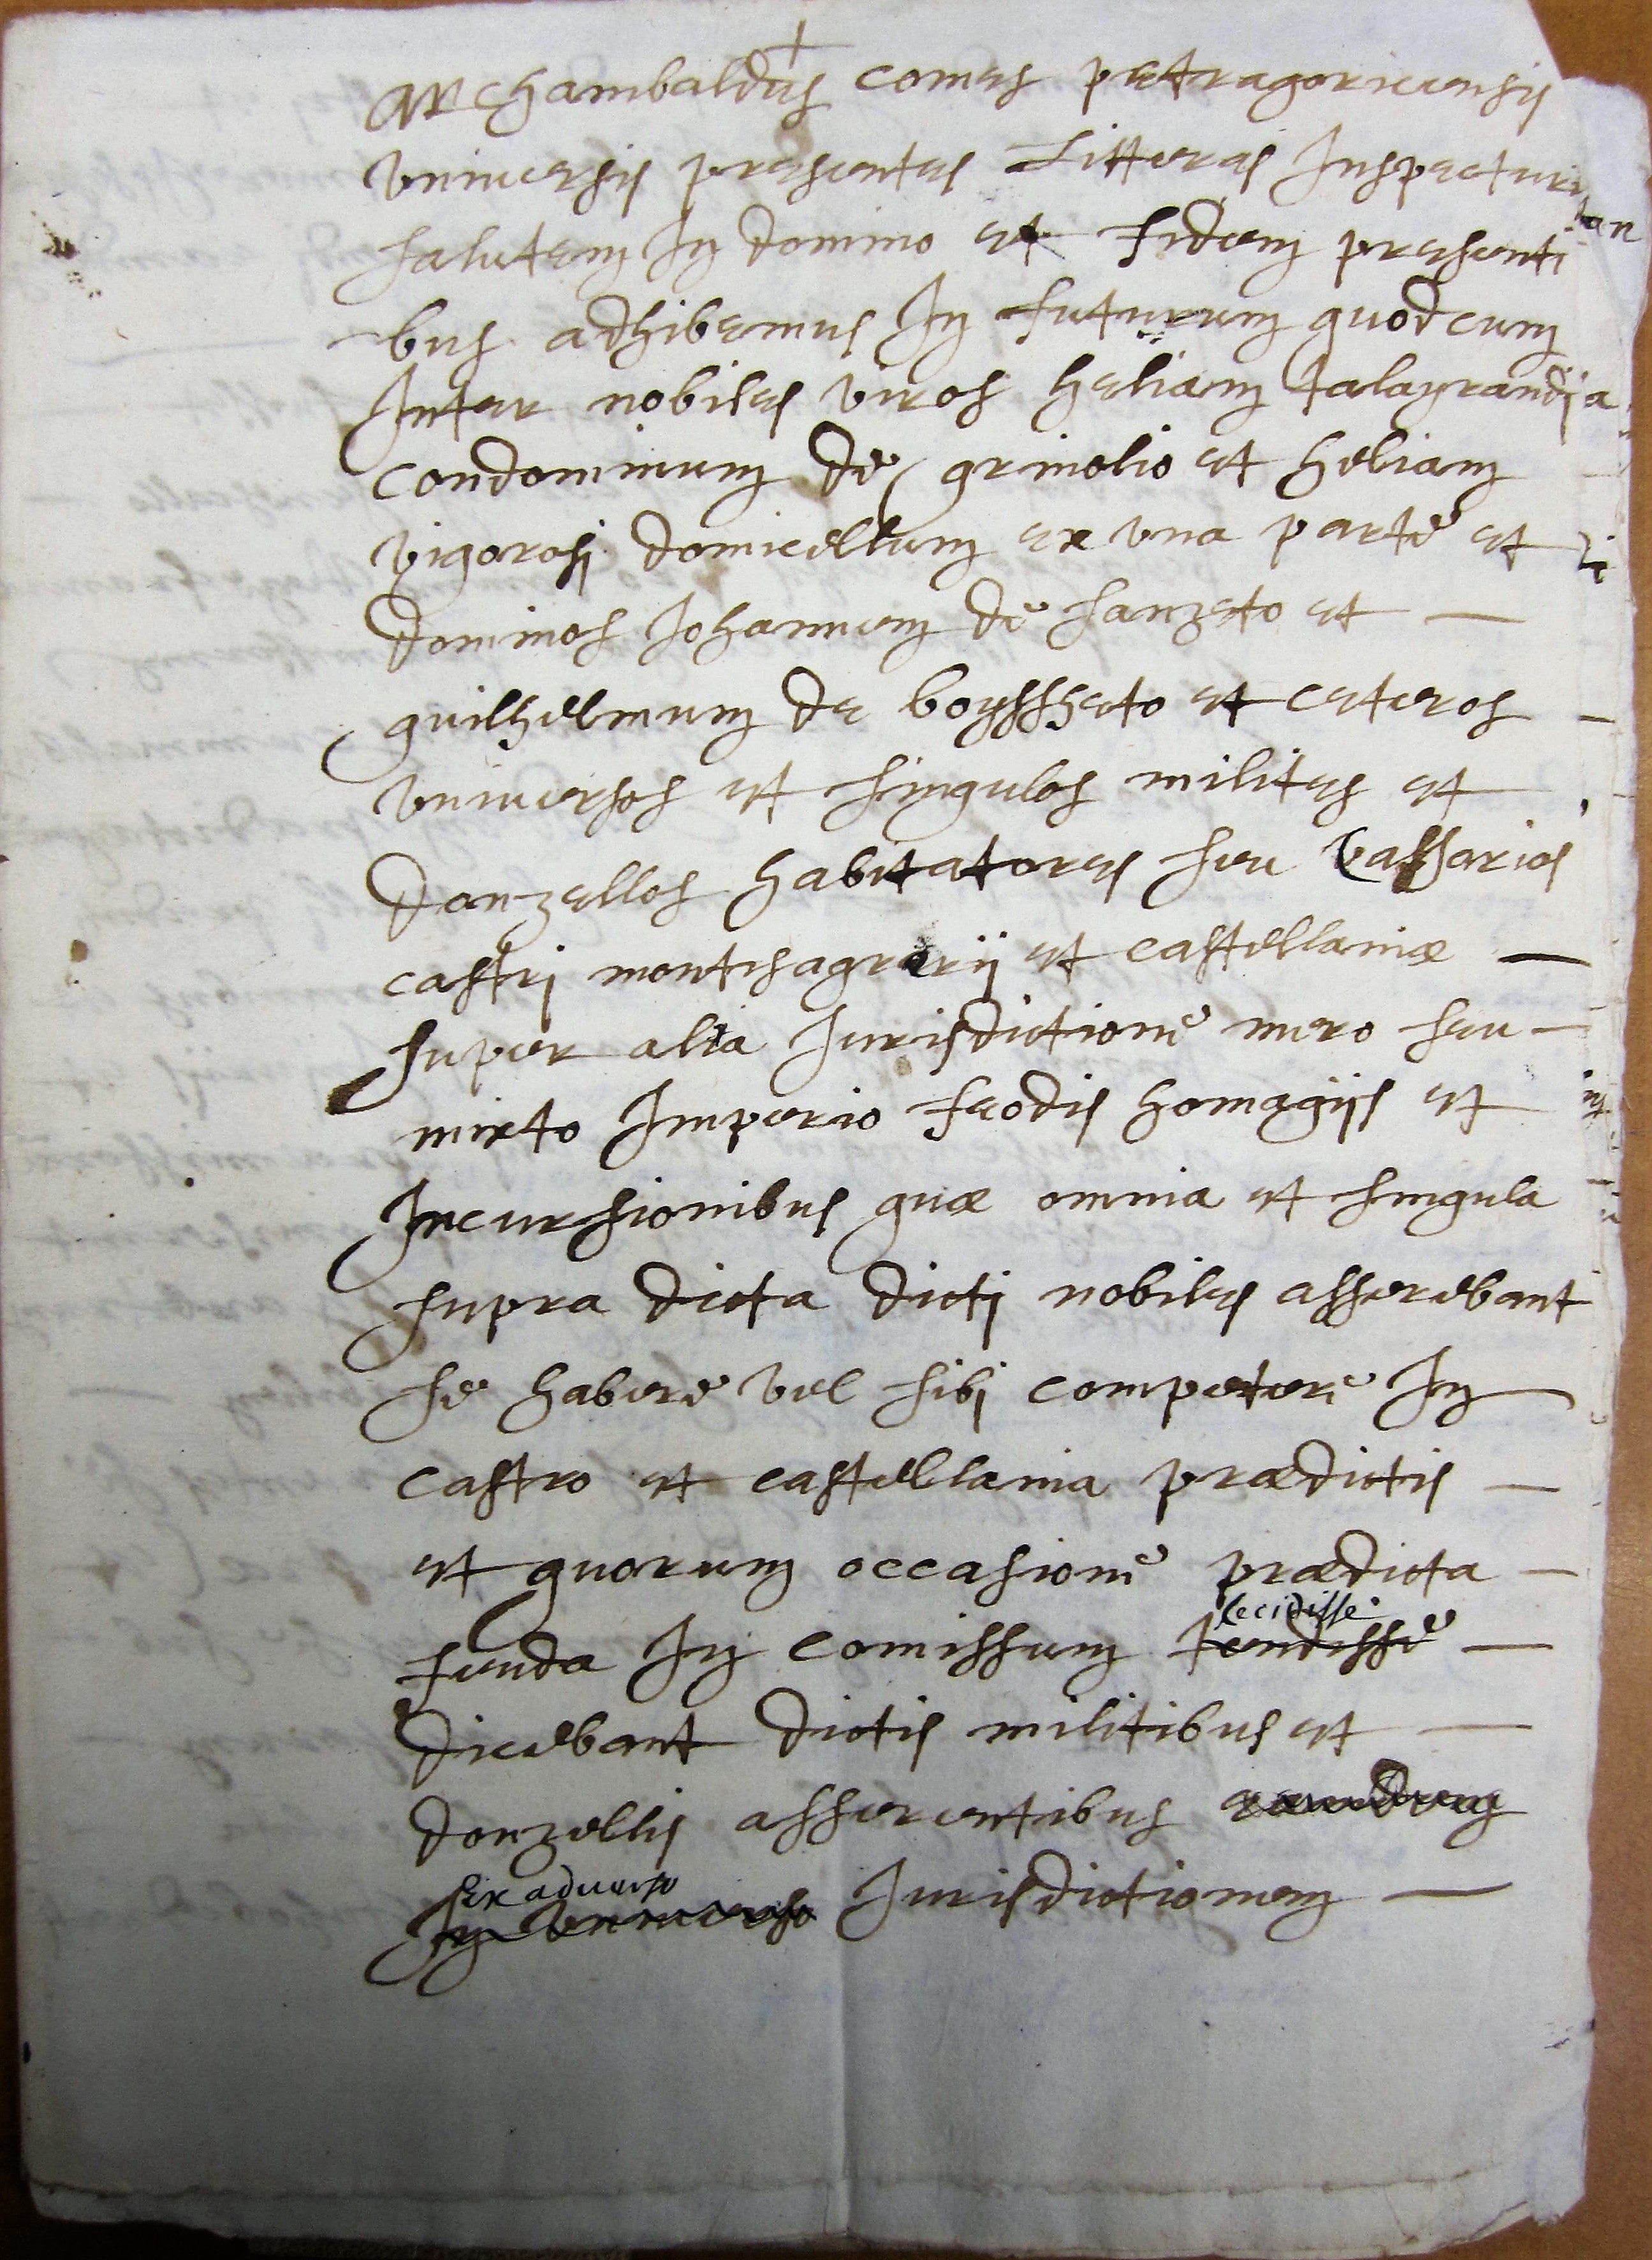 Archambaldus comes petragoricensis
vniuersis presentes Litteras Inspecturis
salutem In domino et fidem presenti
bus adhibemus In futurum quod cum
Inter nobiles viros heliam talayrandi
condominum de grinolio et heliam
vigorosi domicellum ex vna parte et
dominos Johannem de sanzeto et
guilhelmum de boyssheto et ceteros
vniuersos et singulos milites et
donzellos habitatores seu vassarios
castri montisagrerij et castellaniæ
super alta Jurisdictione mero seu
mixto Imperio feodis homagijs et
Incursionibus quæ omnia et singula
supra dicta dicti nobiles asserebant
se habere vel sibi competere In
castro et castellania prædictis
et quorum occasione prædicta
cecidisse
feuda In comissum tendisse
dicebant dictis militibus et
donzellis asserentibus eamdem
Ex aduerso
In vniuerso Jurisdictionem